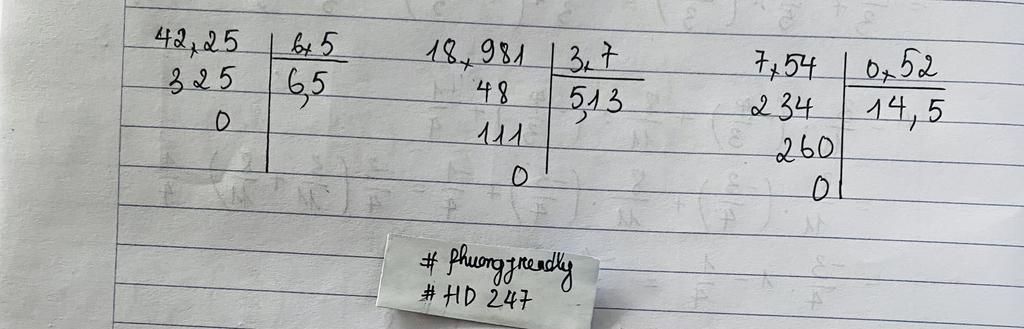 42,25 6,5
325 6,5
0
18,981 3,7
48 5,13
111
0
7,54 0,52
234 14,5
260
0
# phuongfriendly
# HD 247